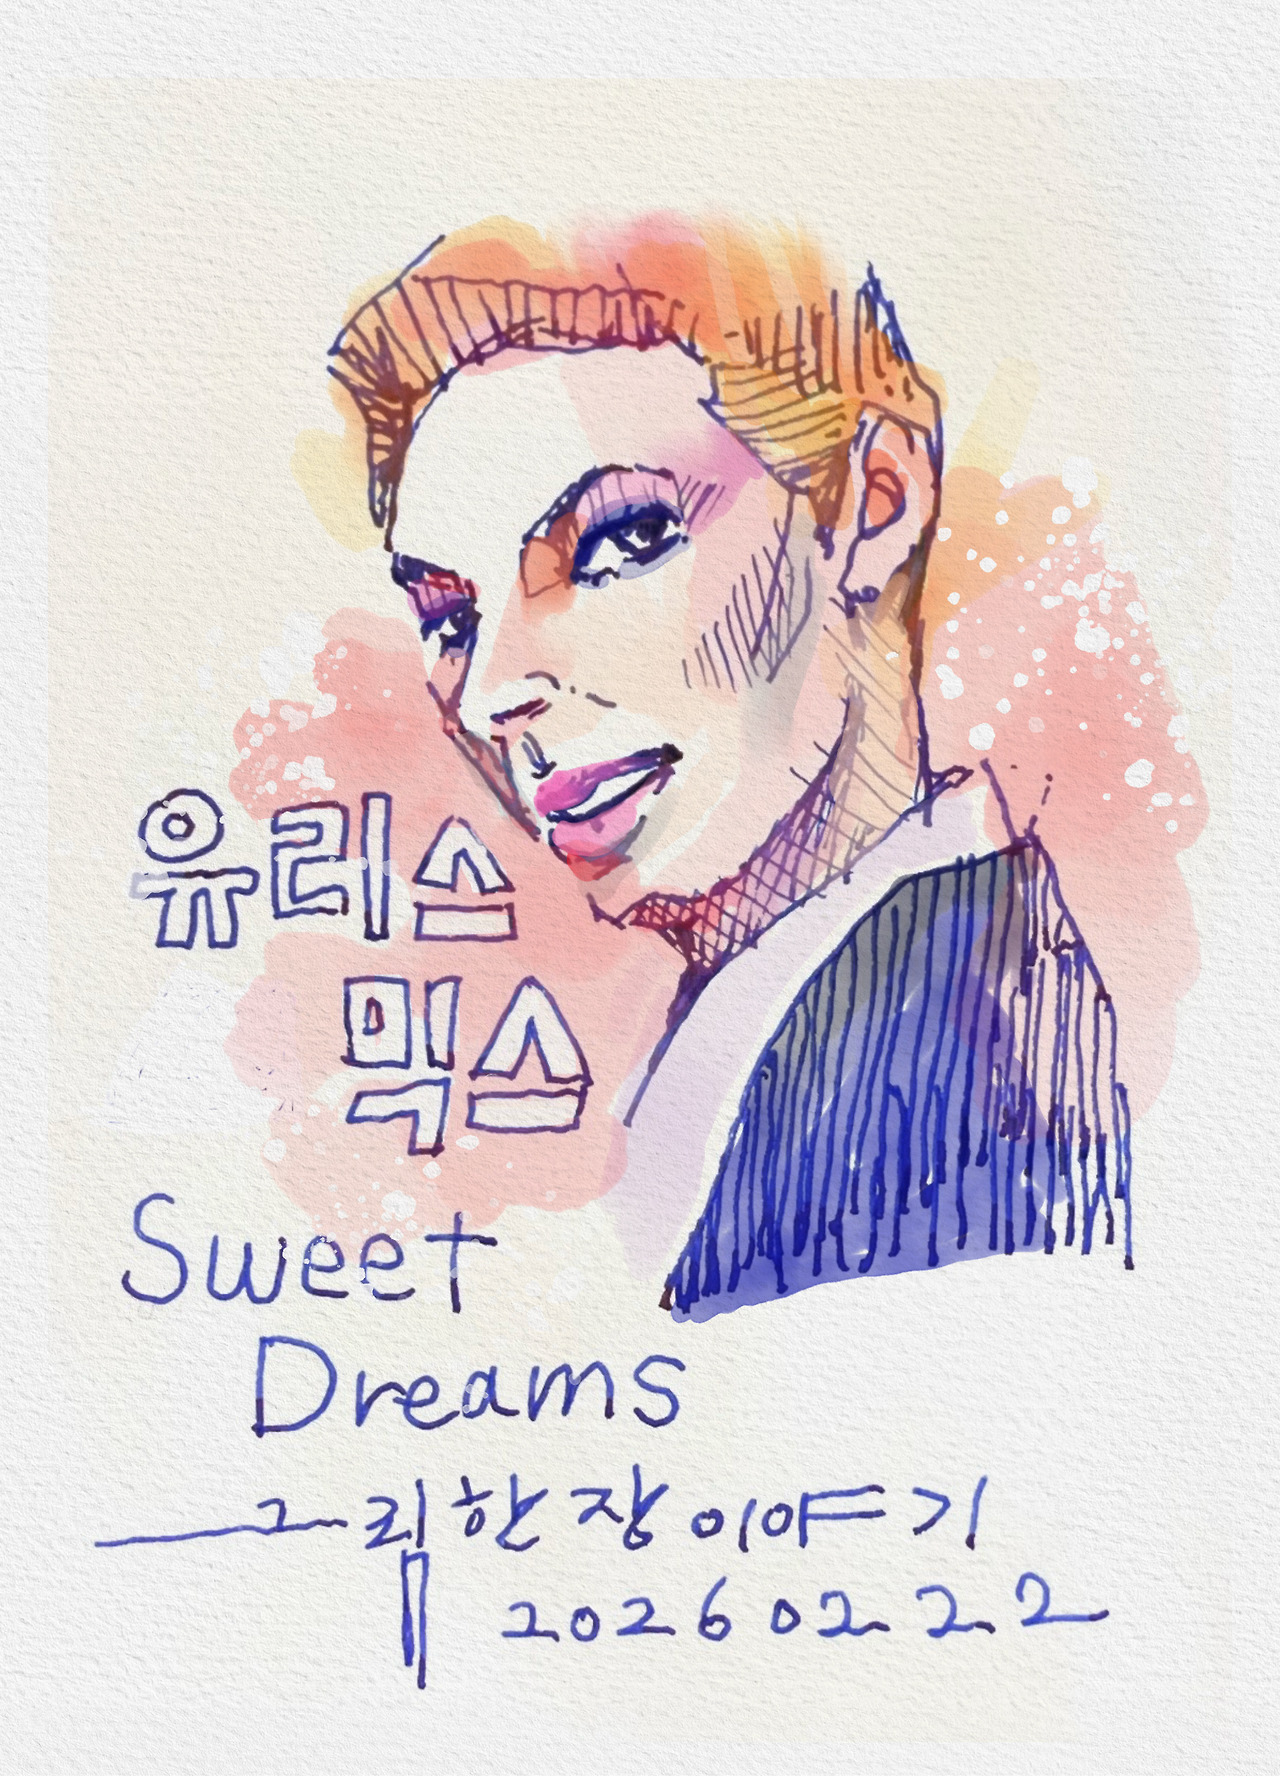 유리스
믹스
Sweet
Dreams
그림한장이야기
20260222